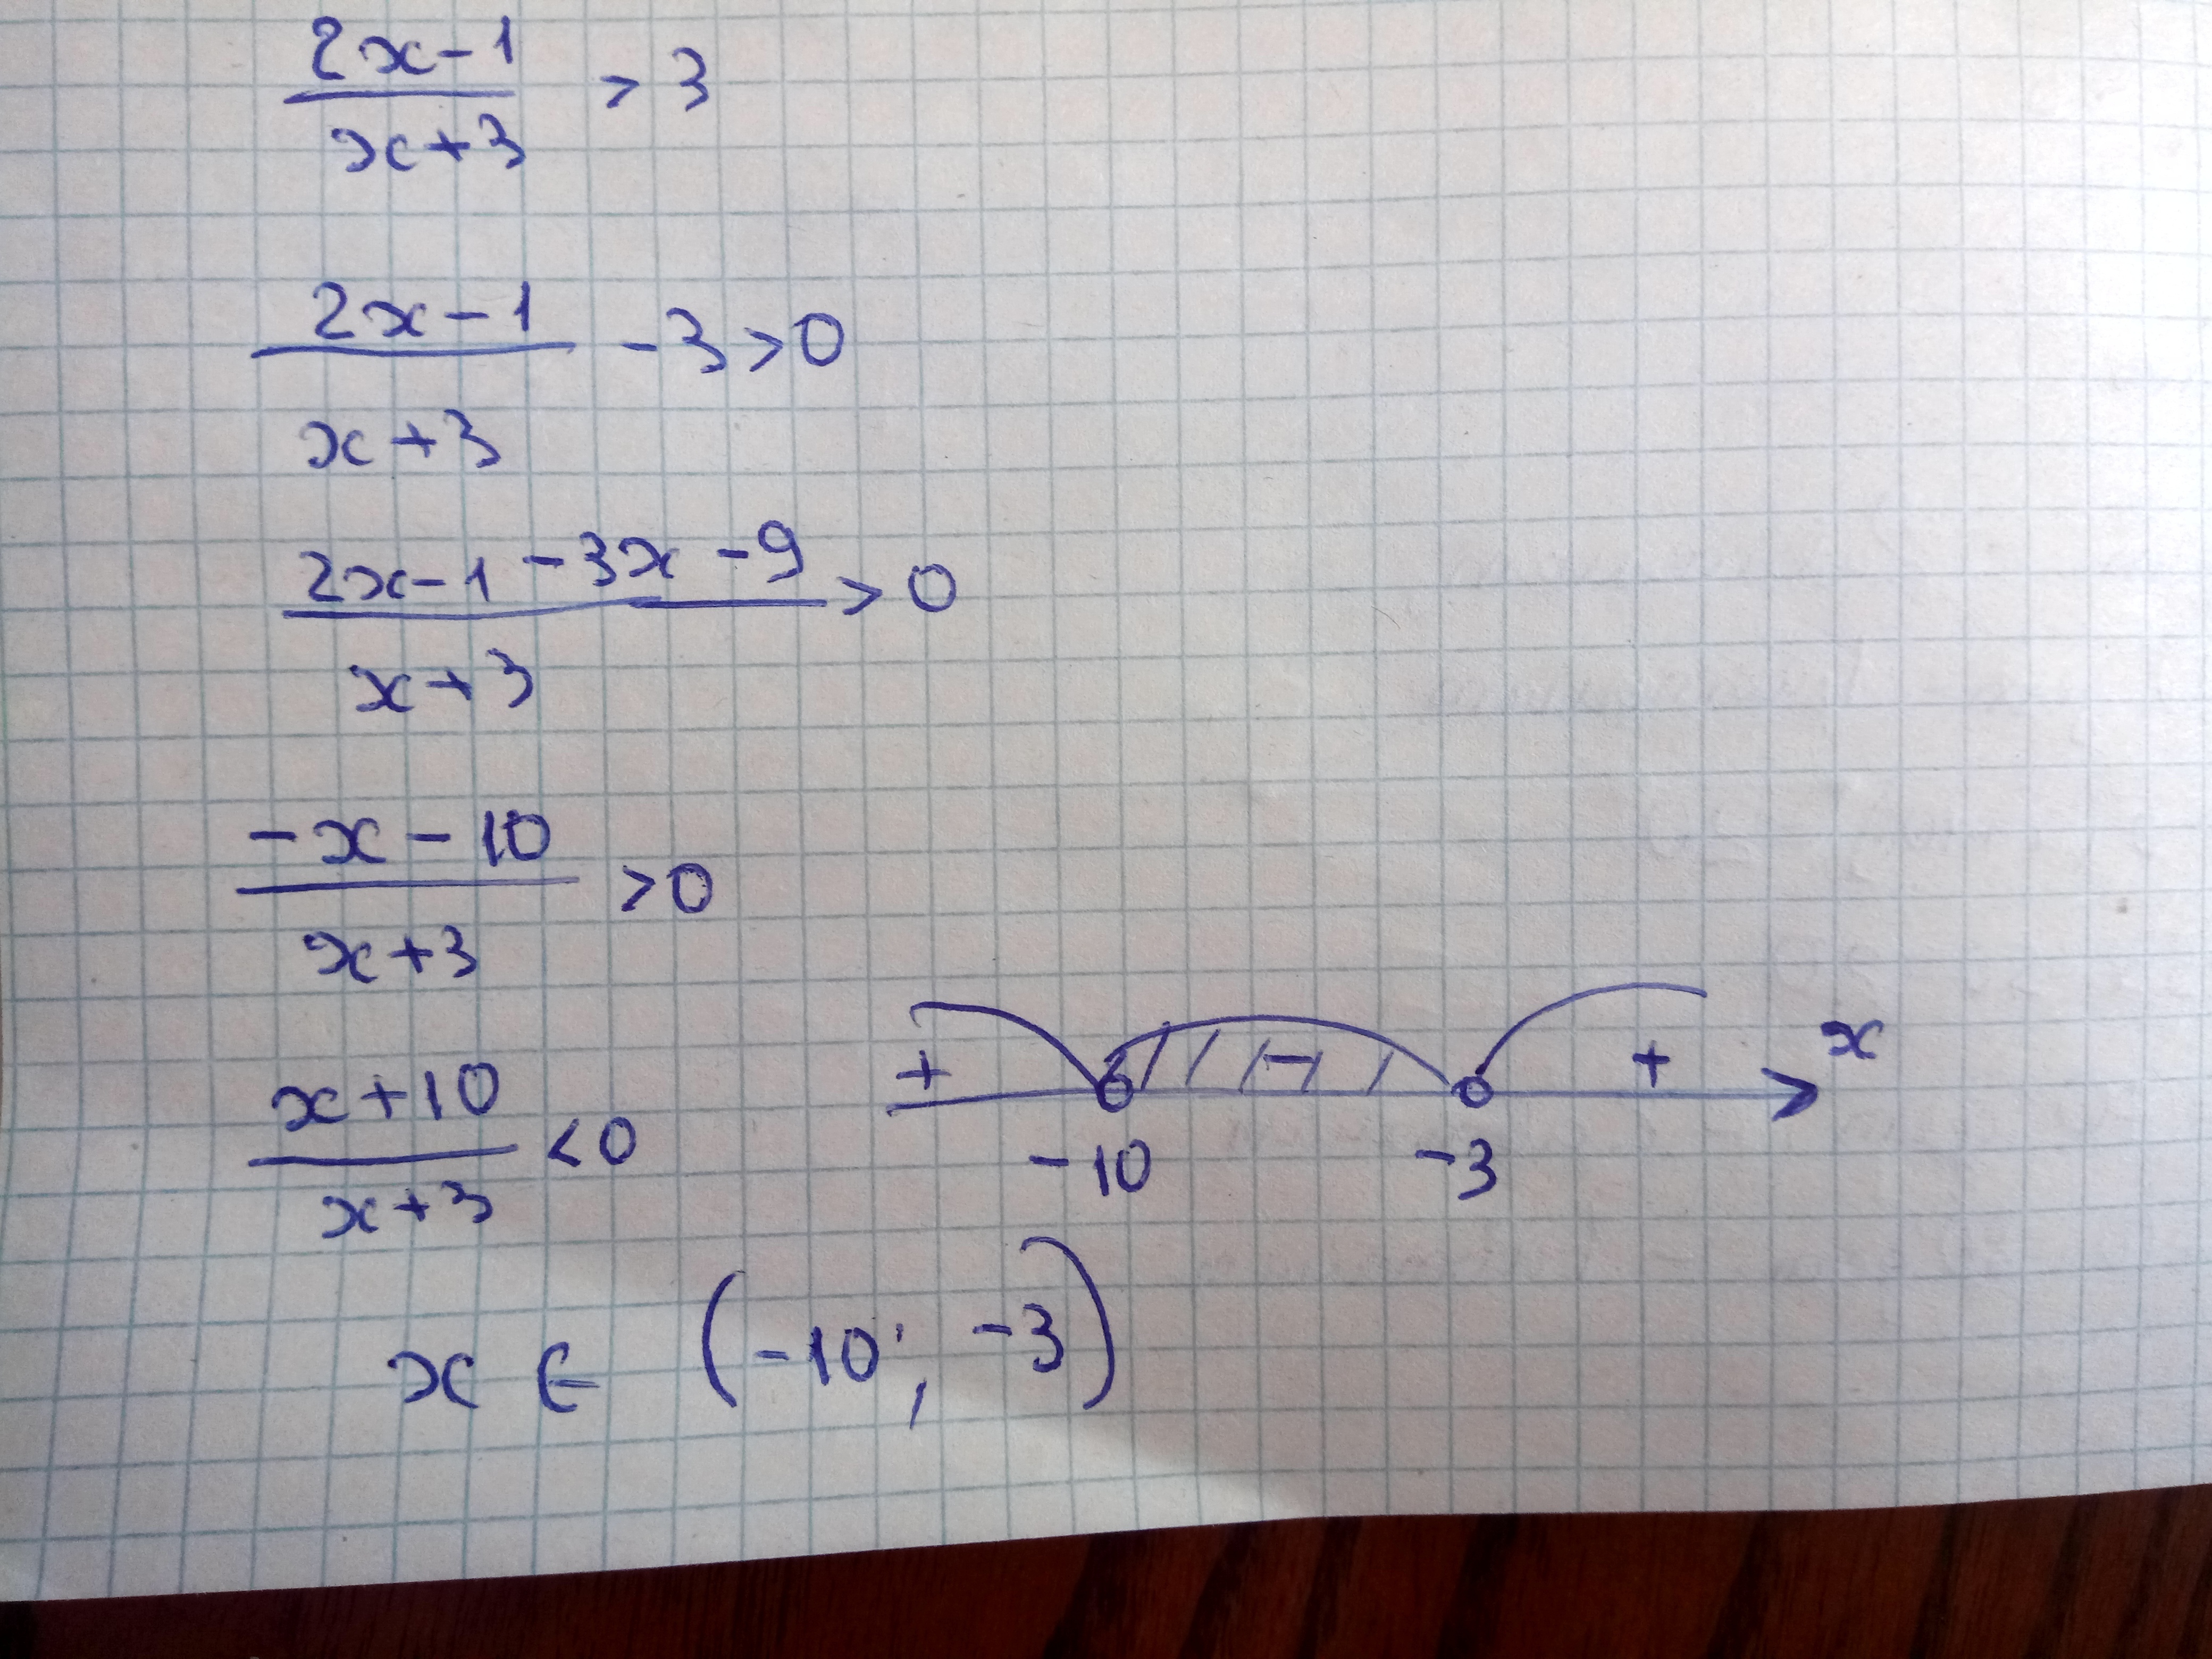 (2x-1)/(x+3) > 3
(2x-1)/(x+3) -3>0
(2x-1-3x-9)/(x+3) > 0
(-x-10)/(x+3) >0
(x+10)/(x+3) <0
+ - + x
-10 -3
x ∈ (-10; -3)